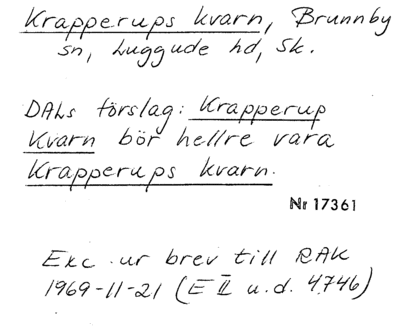 Krapperups kvarn, Brunnby
sn, Luggude hd, Sk.
DALs förslag: Krapperup
Kvarn bör hellre vara
Krapperups kvarn.
Nr 17361
Exc. ur brev till RAK
1969-11-21 (E II u.d. 4746)